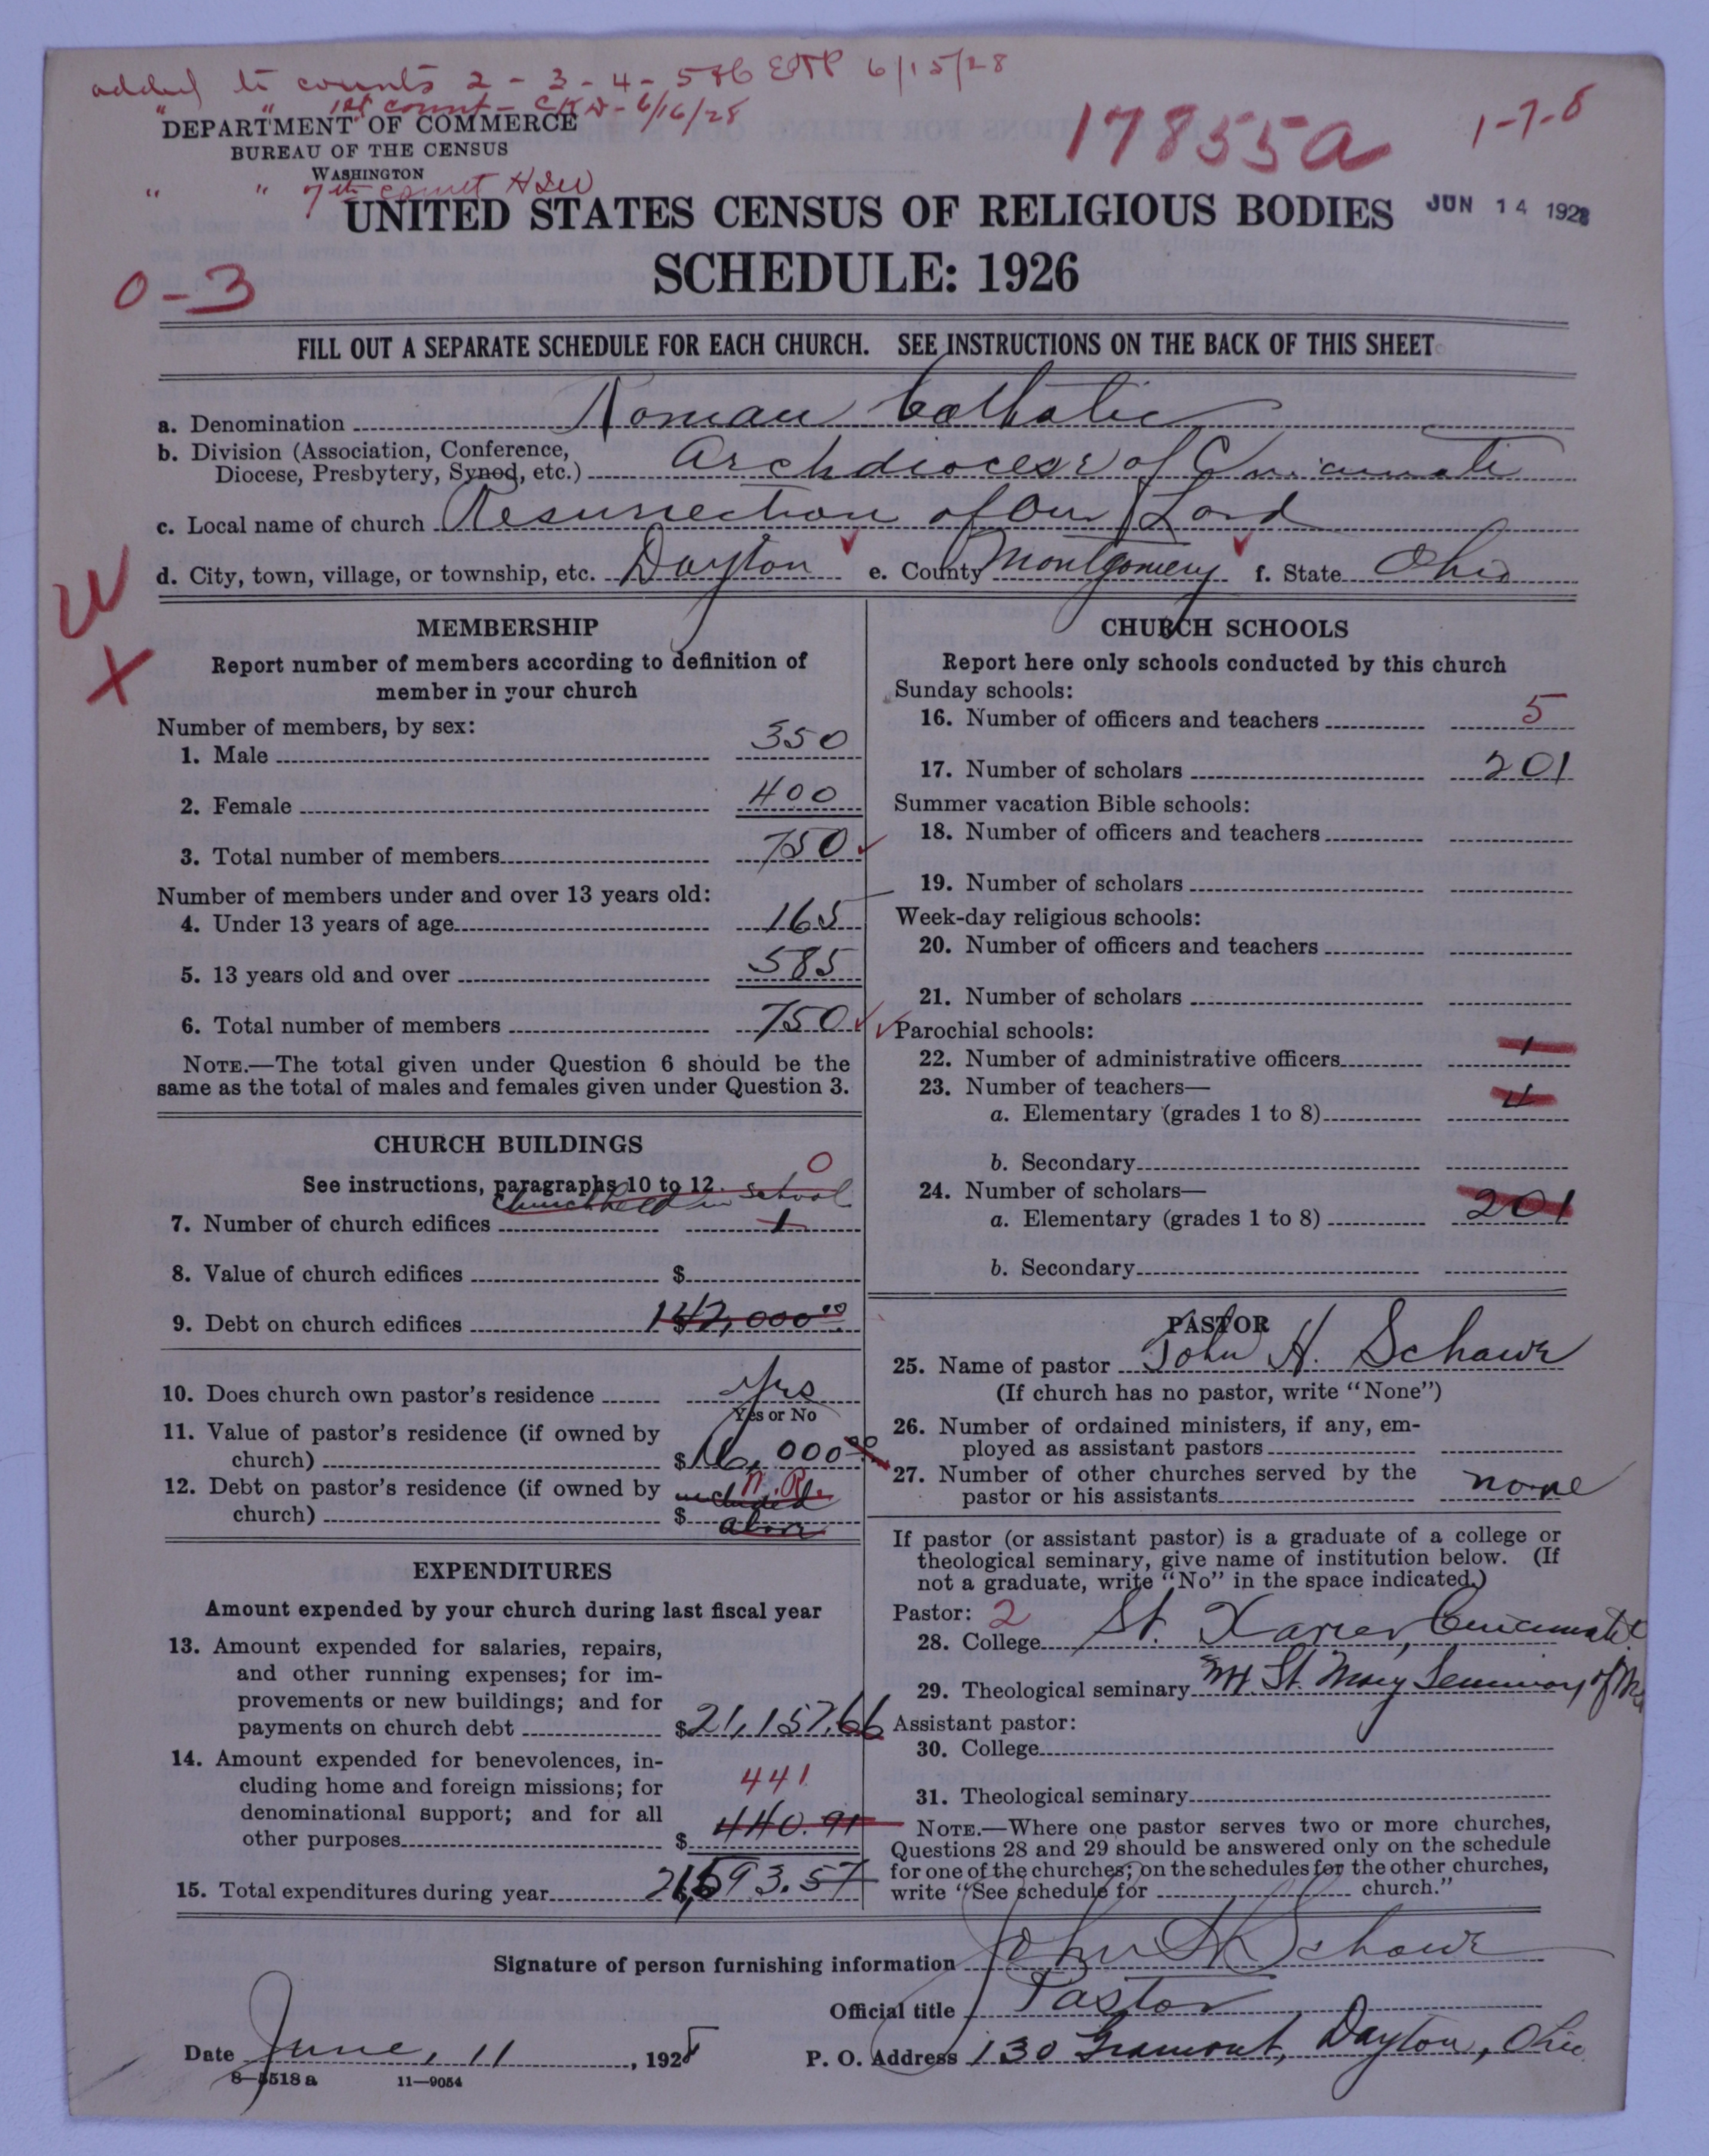 added to counts 2 - 3 - 4 - 5 & 6 6/15/28
" " 1st count - 6/16/28
DEPARTMENT OF COMMERCE
BUREAU OF THE CENSUS
WASHINGTON
" " 7th count
17855a
1-7-8
JUN 14 1928
UNITED STATES CENSUS OF RELIGIOUS BODIES
SCHEDULE: 1926
0-3
FILL OUT A SEPARATE SCHEDULE FOR EACH CHURCH. SEE INSTRUCTIONS ON THE BACK OF THIS SHEET
a. Denomination Roman Catholic
b. Division (Association, Conference,
Diocese, Presbytery, Synod, etc.) Archdiocese of Cincinnati
c. Local name of church Resurrection of Our Lord
d. City, town, village, or township, etc. Dayton e. County Montgomery f. State Ohio
X
MEMBERSHIP
Report number of members according to definition of
member in your church
Number of members, by sex:
1. Male 350
2. Female 400
3. Total number of members 750
Number of members under and over 13 years old:
4. Under 13 years of age 165
5. 13 years old and over 585
6. Total number of members 750
NOTE.—The total given under Question 6 should be the
same as the total of males and females given under Question 3.
CHURCH BUILDINGS
See instructions, paragraphs 10 to 12
0
Church held in school
7. Number of church edifices 1
8. Value of church edifices $
9. Debt on church edifices 142,000.00
10. Does church own pastor's residence Yes
Yes or No
11. Value of pastor's residence (if owned by
church) $16,000.00
12. Debt on pastor's residence (if owned by
church) $ included above
N.R.
EXPENDITURES
Amount expended by your church during last fiscal year
13. Amount expended for salaries, repairs,
and other running expenses; for im-
provements or new buildings; and for
payments on church debt $21,157.66
14. Amount expended for benevolences, in-
cluding home and foreign missions; for
denominational support; and for all
other purposes $ 440.91
441
15. Total expenditures during year 21,593.57
CHURCH SCHOOLS
Report here only schools conducted by this church
Sunday schools:
16. Number of officers and teachers 5
17. Number of scholars 201
Summer vacation Bible schools:
18. Number of officers and teachers
19. Number of scholars
Week-day religious schools:
20. Number of officers and teachers
21. Number of scholars
Parochial schools:
22. Number of administrative officers 1
23. Number of teachers—
a. Elementary (grades 1 to 8) 4
b. Secondary
24. Number of scholars—
a. Elementary (grades 1 to 8) 201
b. Secondary
PASTOR
25. Name of pastor John H. Schawe
(If church has no pastor, write "None")
26. Number of ordained ministers, if any, em-
ployed as assistant pastors
27. Number of other churches served by the
pastor or his assistants none
If pastor (or assistant pastor) is a graduate of a college or
theological seminary, give name of institution below. (If
not a graduate, write "No" in the space indicated.)
Pastor: 2
28. College St. Xavier, Cincinnati
29. Theological seminary Mt St. Mary Seminary of
Assistant pastor:
30. College
31. Theological seminary
NOTE.—Where one pastor serves two or more churches,
Questions 28 and 29 should be answered only on the schedule
for one of the churches; on the schedules for the other churches,
write "See schedule for church."
Signature of person furnishing information John H Schawe
Official title Pastor
Date June, 11, 1928 P. O. Address 130 Gramont, Dayton, Ohio
8—5518a 11—9054